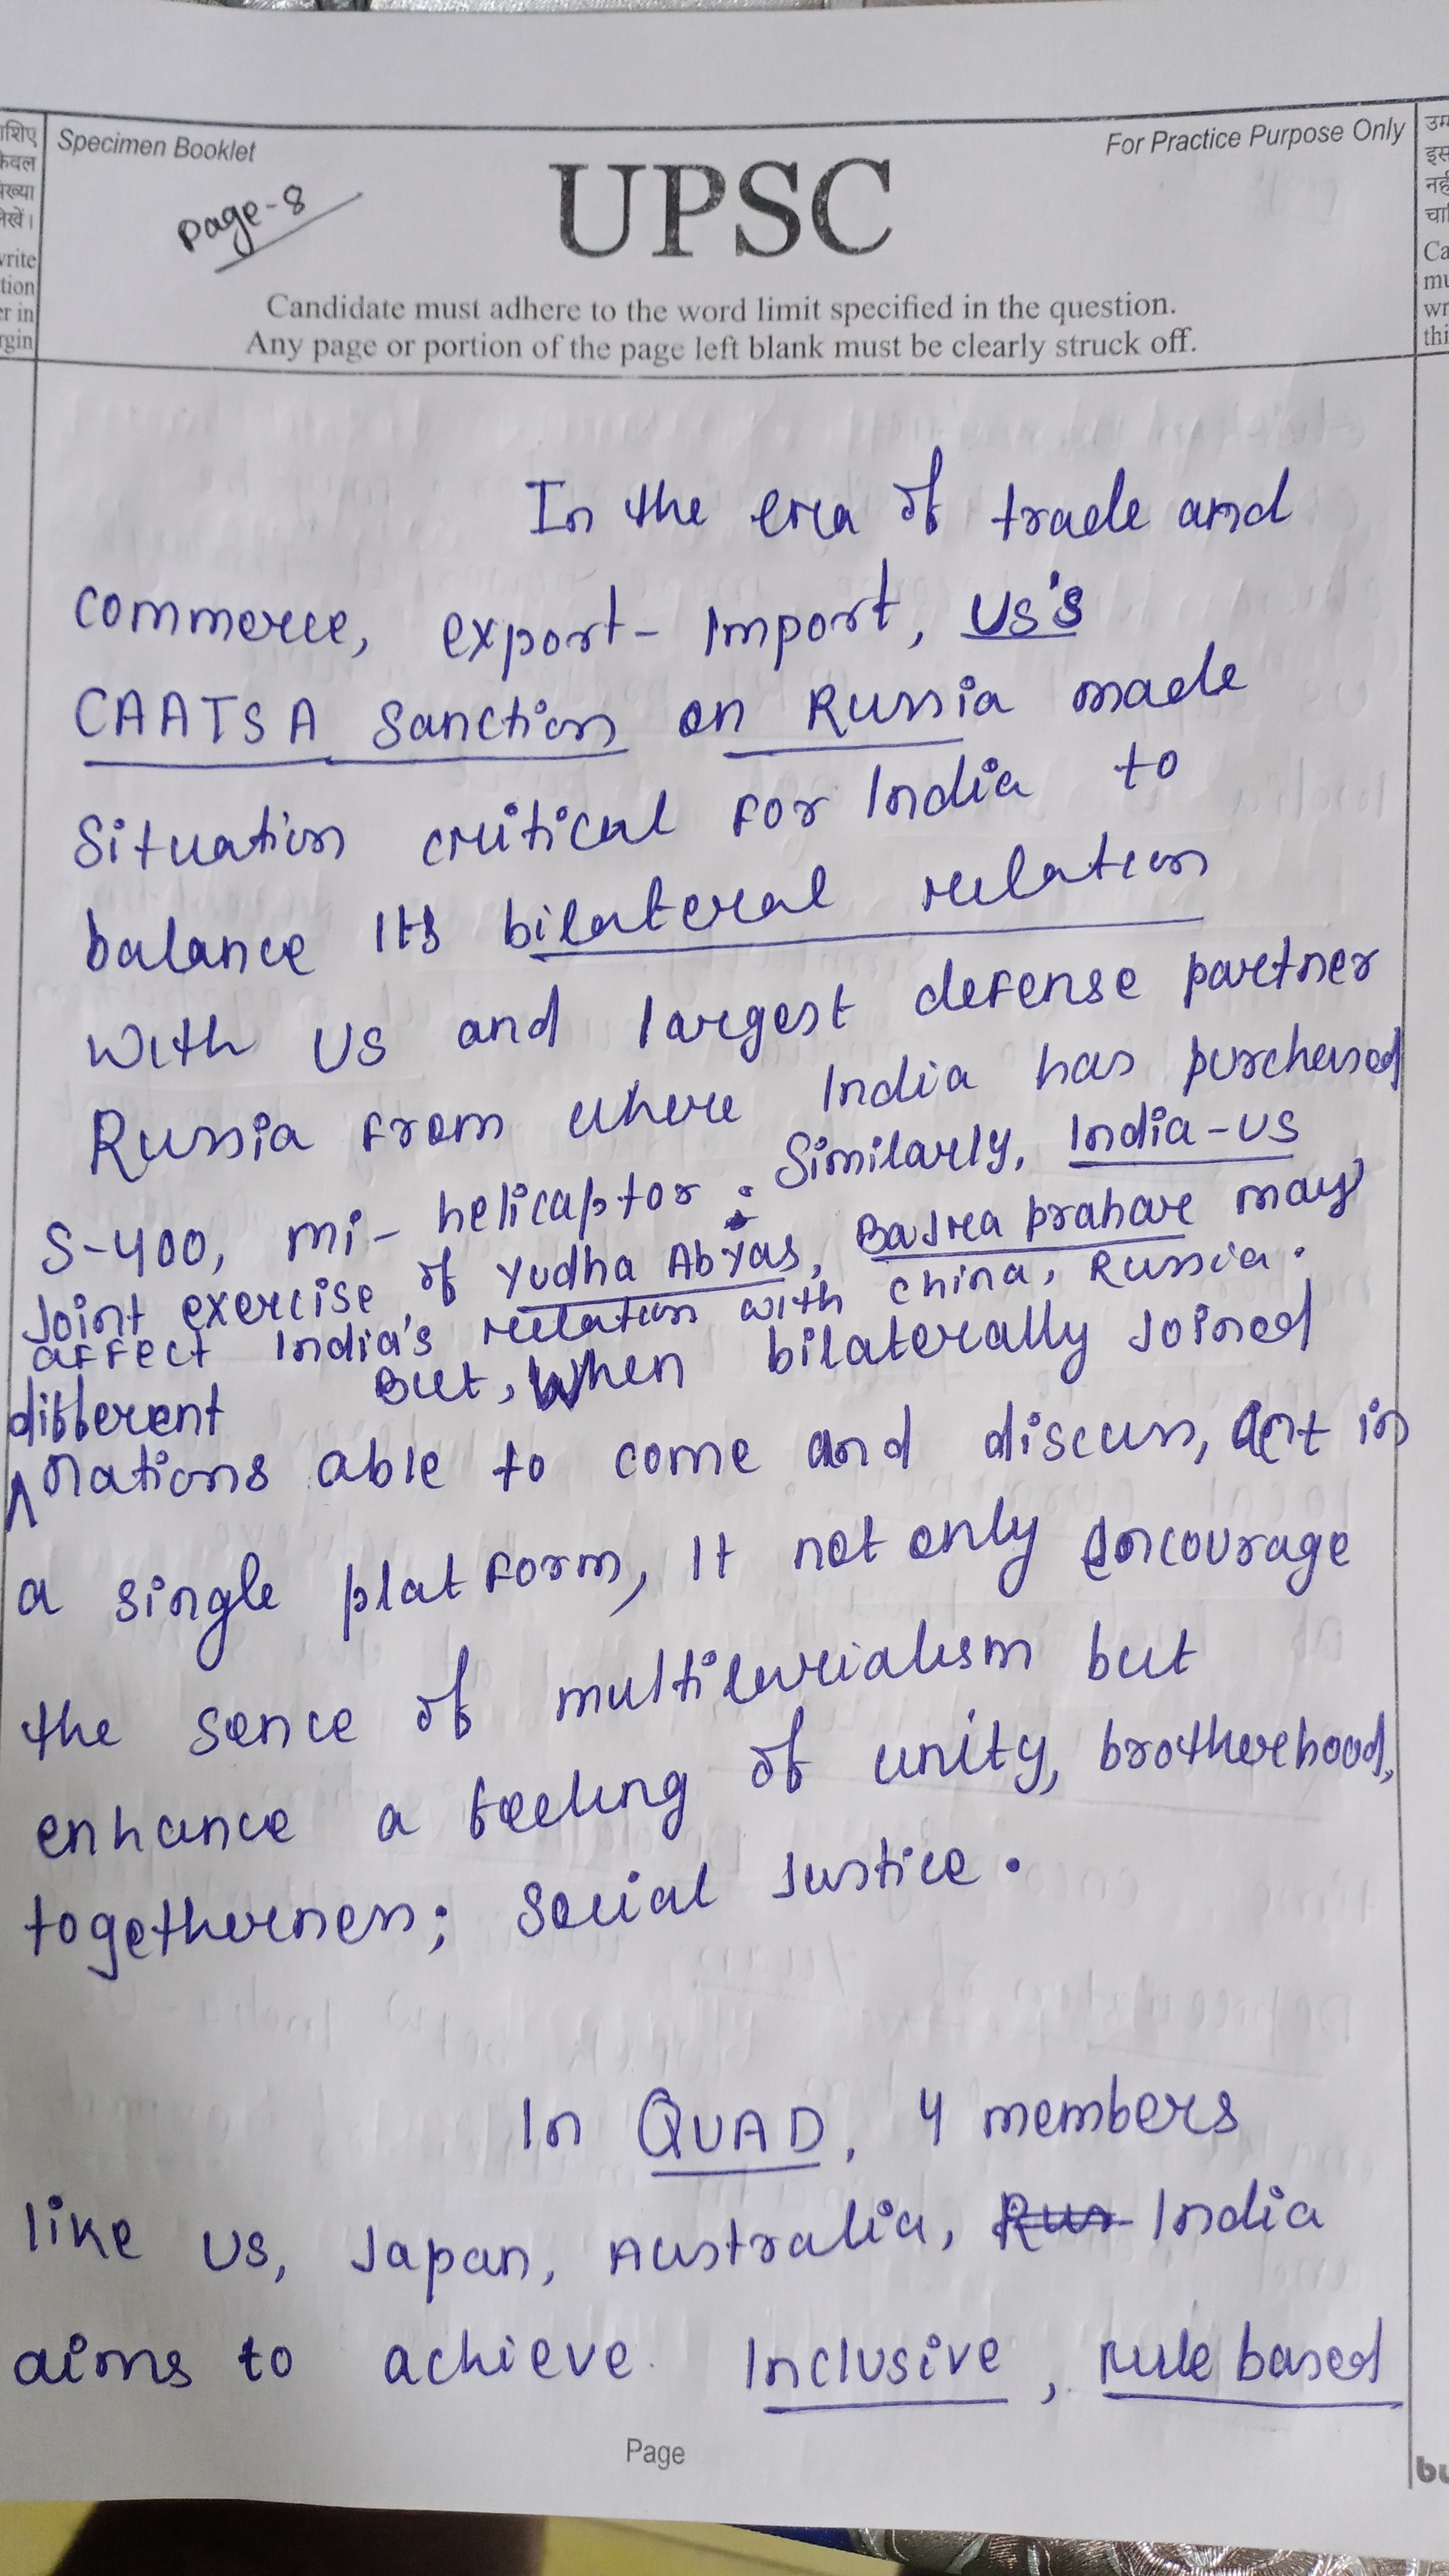 ाशिए
केवल
संख्या
लिखें।
write
tion
er in
rgin
Specimen Booklet
Page-8
UPSC
For Practice Purpose Only
Candidate must adhere to the word limit specified in the question.
Any page or portion of the page left blank must be clearly struck off.
उम्
इस
नहीं
चा
Ca
mu
wr
thi
In the era of trade and
commerce, export- Import, US's
CAATSA Sanction on Russia made
Situation critical for India to
balance Its bilateral relation
With US and largest defense partner
Russia from where India has purchased
S-400, mi- helicaptor. Similarly, India-US
Joint exercise of Yudha Abyas, Bajra prahare may
affect India's relation with china, Russia.
But, When bilaterally Joined
different
nations able to come and discuss, act in
a single platform, It not only encourage
the sence of but
enhance a feeling of unity, brotherhood,
togetherness; Social Justice.
In QUAD, 4 members
like US, Japan, Australia, Rus India
aims to achieve Inclusive, rule based
Page
bu